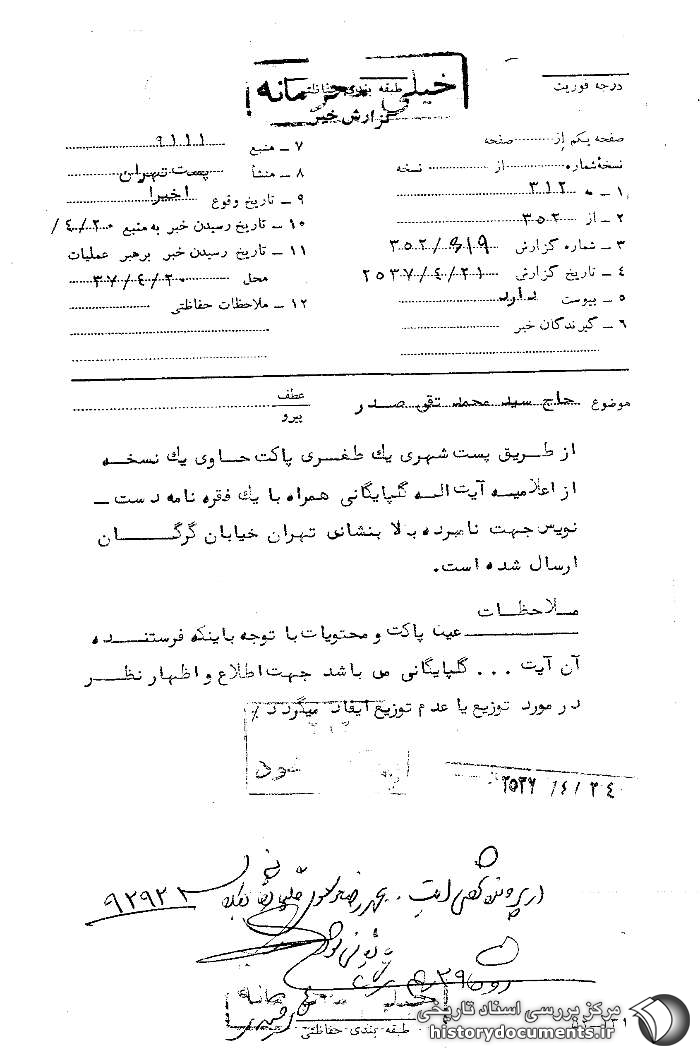 درجه فوریت
خیلی محرمانه
طبقه بندی حفاظتی
گزارش خبر
صفحه یکم از صفحه
نسخه شماره از نسخه
۱ ـ به ۳۱۲
۲ ـ از ۳۵۲
۳ ـ شماره گزارش ۳۵۲/۶۱۹
۴ ـ تاریخ گزارش ۲۵۳۷/۴/۲۱
۵ ـ پیوست دارد
۶ ـ گیرندگان خبر
۷ ـ منبع ۹۱۱۱
۸ ـ منشأ پست تهران
۹ ـ تاریخ وقوع اخیرا
۱۰ ـ تاریخ رسیدن خبر به منبع ۴/۲۰/
۱۱ ـ تاریخ رسیدن خبر برهبر عملیات
محل ۳۷/۴/۲۰
۱۲ ـ ملاحظات حفاظتی
موضوع حاج سید محمد تقی صدر
عطف
پیرو
از طریق پست شهری یك طغری پاکت حاوی یك نسخه
از اعلامیه آیت اله گلپایگانی همراه با یك فقره نامه دست ـ
نویس جهت نامبرده بالا بنشانی تهران خیابان گرگان
ارسال شده است.
ملاحظات
عین پاکت و محتویات با توجه باینکه فرستنده
آن آیت ... گلپایگانی می باشد جهت اطلاع و اظهار نظر
در مورد توزیع یا عدم توزیع ایفاد میگردد/
شود
۲۵۳۷/۴/۲۴
در پرونده
۹۲۹۲۳
طبقه بندی حفاظتی
مرکز بررسی اسناد تاریخی
historydocuments.ir